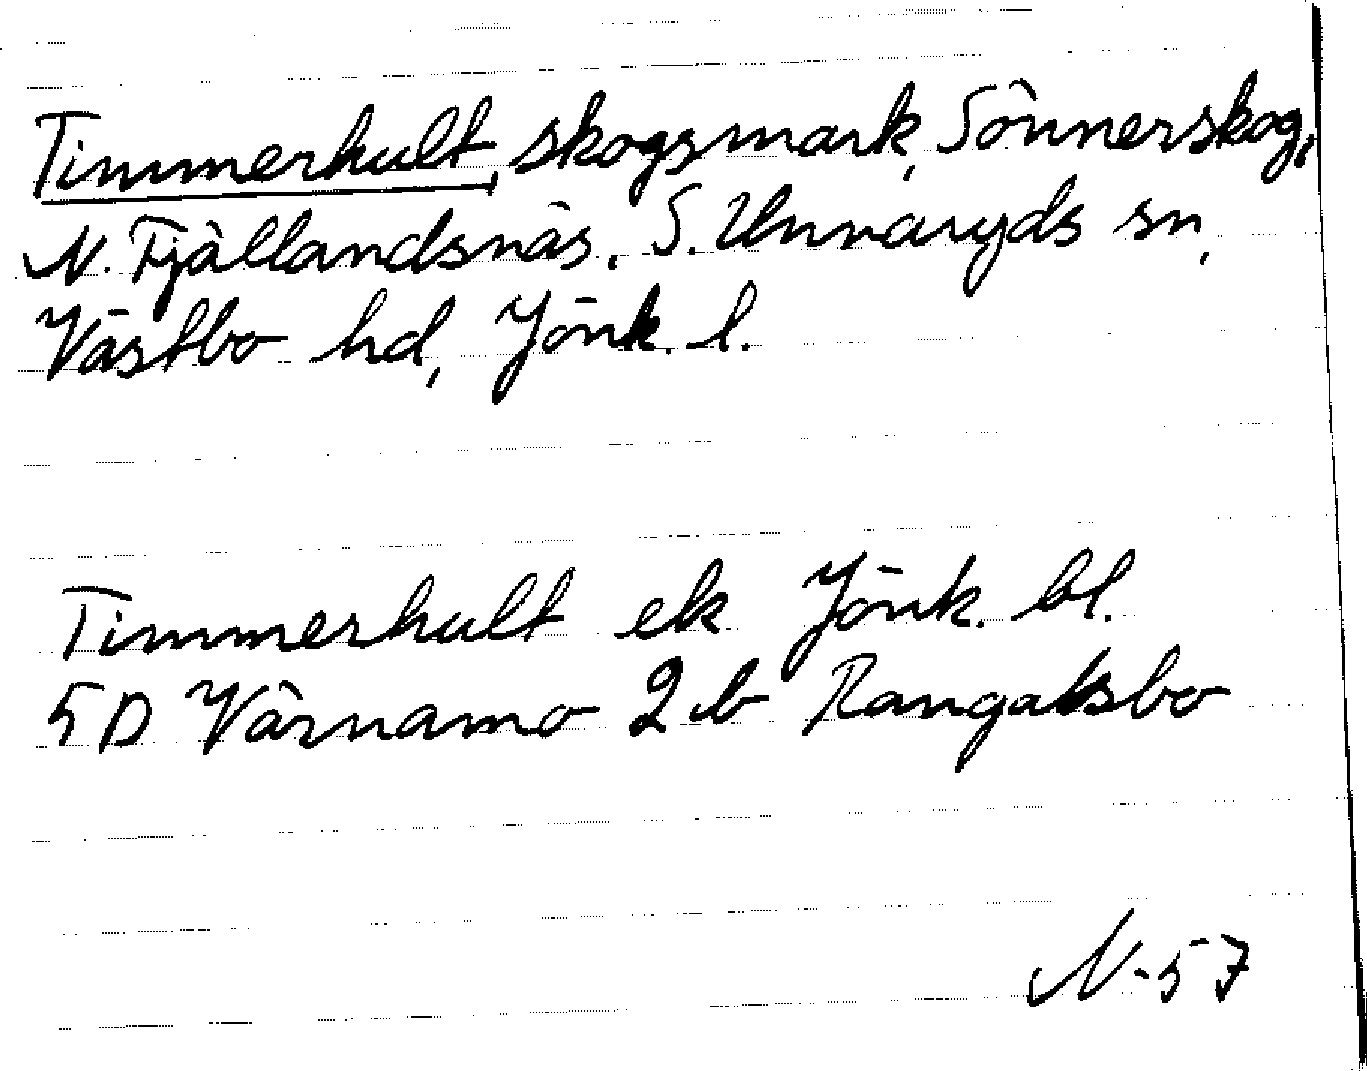 Timmerhult, skogsmark, Sönnerskog,
N. Fjällandsnäs, S. Unnaryds sn,
Västbo hd, Jönk. l.
Timmerhult ek Jönk. bl.
5D Värnamo 2 b Rangaksbo
N-57